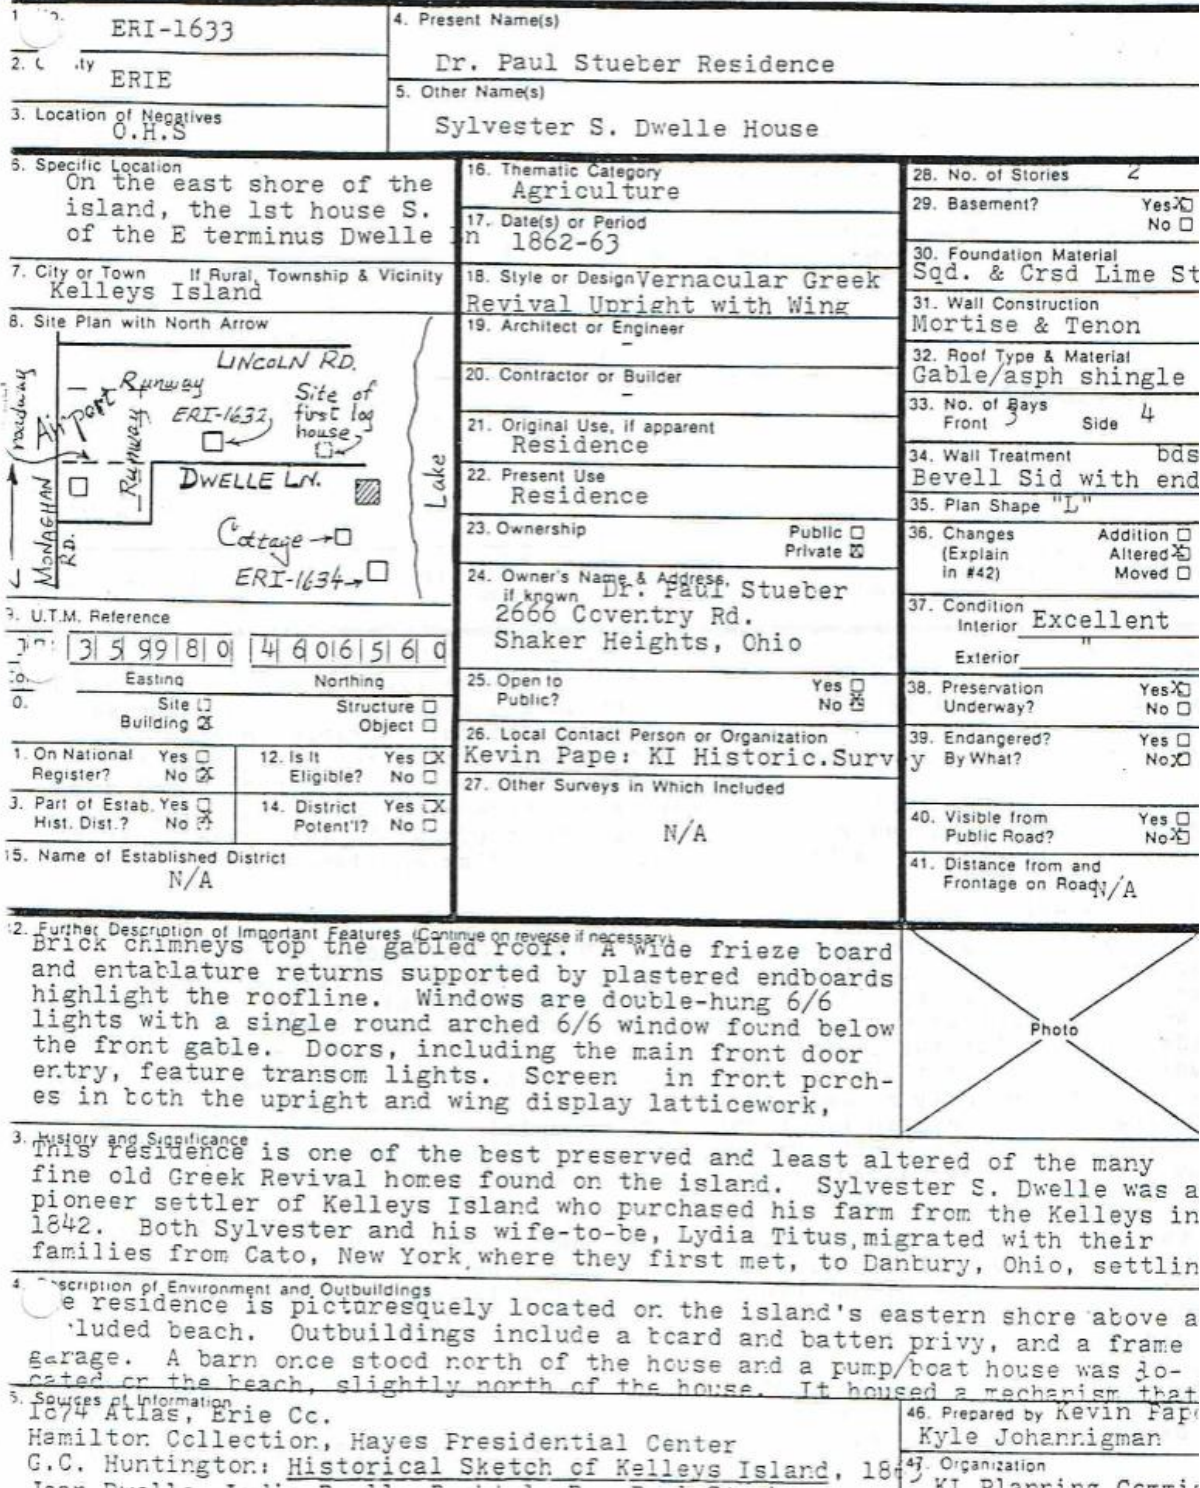 ERI-1633
4. Present Name(s)
Dr. Paul Stueber Residence
2. ty
ERIE
5. Other Name(s)
Sylvester S. Dwelle House
3. Location of Negatives
O.H.S
6. Specific Location
On the east shore of the
island, the 1st house S.
of the E terminus Dwelle Ln
7. City or Town If Rural, Township & Vicinity
Kelleys Island
8. Site Plan with North Arrow
LINCOLN RD.
Runway
Site of
first log
house
ERI-1632
Airport
roadway
Runway
DWELLE LN.
Lake
MONAGHAN
RD.
Cottage
ERI-1634
9. U.T.M. Reference
359980 4606560
Easting Northing
Site Structure
Building Object
1. On National Register? Yes No
12. Is It Eligible? Yes No
3. Part of Estab. Hist. Dist.? Yes No
14. District Potent'l? Yes No
15. Name of Established District
N/A
16. Thematic Category
Agriculture
17. Date(s) or Period
1862-63
18. Style or Design Vernacular Greek
Revival Upright with Wing
19. Architect or Engineer
-
20. Contractor or Builder
-
21. Original Use, if apparent
Residence
22. Present Use
Residence
23. Ownership Public
Private
24. Owner's Name & Address,
if known Dr. Paul Stueber
2666 Coventry Rd.
Shaker Heights, Ohio
25. Open to Yes
Public? No
26. Local Contact Person or Organization
Kevin Pape: KI Historic.Survy
27. Other Surveys in Which Included
N/A
28. No. of Stories 2
29. Basement? Yes
No
30. Foundation Material
Sqd. & Crsd Lime St
31. Wall Construction
Mortise & Tenon
32. Roof Type & Material
Gable/asph shingle
33. No. of Bays
Front 3 Side 4
34. Wall Treatment bds
Bevell Sid with end
35. Plan Shape "L"
36. Changes Addition
(Explain Altered
in #42) Moved
37. Condition
Interior Excellent
Exterior "
38. Preservation Yes
Underway? No
39. Endangered? Yes
By What? No
40. Visible from Yes
Public Road? No
41. Distance from and
Frontage on Road N/A
2. Further Description of Important Features (Continue on reverse if necessary)
Brick chimneys top the gabled roof. A wide frieze board
and entablature returns supported by plastered endboards
highlight the roofline. Windows are double-hung 6/6
lights with a single round arched 6/6 window found below
the front gable. Doors, including the main front door
entry, feature transom lights. Screen in front porch-
es in both the upright and wing display latticework,
Photo
3. History and Significance
This residence is one of the best preserved and least altered of the many
fine old Greek Revival homes found on the island. Sylvester S. Dwelle was a
pioneer settler of Kelleys Island who purchased his farm from the Kelleys in
1842. Both Sylvester and his wife-to-be, Lydia Titus, migrated with their
families from Cato, New York, where they first met, to Danbury, Ohio, settlin
4. scription of Environment and Outbuildings
e residence is picturesquely located on the island's eastern shore above a
luded beach. Outbuildings include a board and batten privy, and a frame
garage. A barn once stood north of the house and a pump/boat house was lo-
cated on the beach, slightly north of the house. It housed a mechanism that
5. Sources of Information
1874 Atlas, Erie Co.
Hamilton Collection, Hayes Presidential Center
G.C. Huntington: Historical Sketch of Kelleys Island, 18
46. Prepared by Kevin Pape
Kyle Johannigman
47. Organization
KI Planning Commis